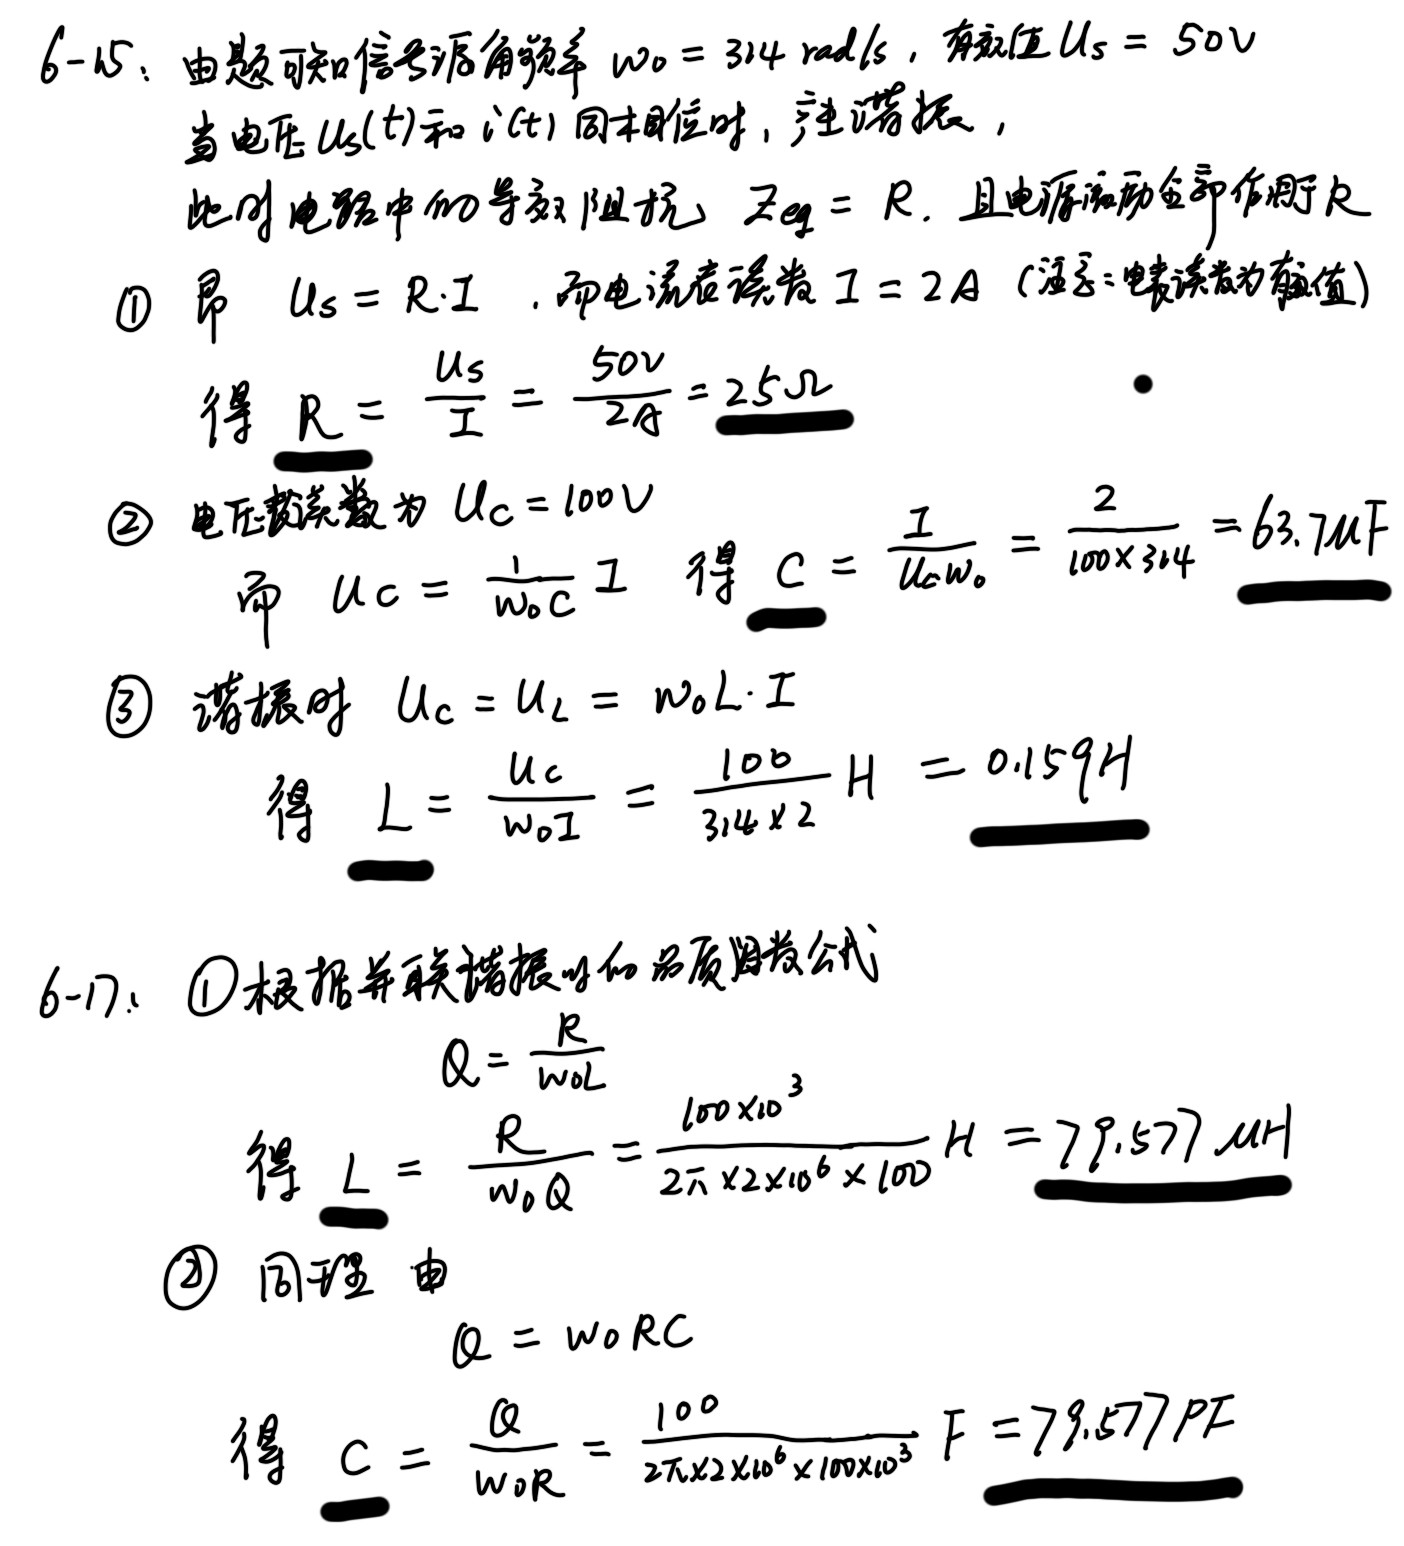 6-15: 由题可知信号源角频率 w₀ = 314 rad/s, 有效值 Us = 50V
当电压 Us(t) 和 i(t) 同相位时, 产生谐振,
此时电路中的等效阻抗 Zeq = R. 且电源激励全部作用于R
① 即 Us = R·I , 而电流表读数 I = 2A (注意:电表读数为有效值)
得 R = Us/I = 50V/2A = 25Ω
② 电压表读数为 Uc = 100V
而 Uc = 1/(w₀C) I 得 C = I/(Ucw₀) = 2/(100×314) = 63.7μF
③ 谐振时 Uc = UL = w₀L·I
得 L = Uc/(w₀I) = 100/(314×2) H = 0.159H
6-17: ①根据并联谐振时的品质因数公式
Q = R/(w₀L)
得 L = R/(w₀Q) = 100×10³/(2π×2×10⁶×100) H = 79.577μH
② 同理 由
Q = w₀RC
得 C = Q/(w₀R) = 100/(2π×2×10⁶×100×10³) F = 79.577PF